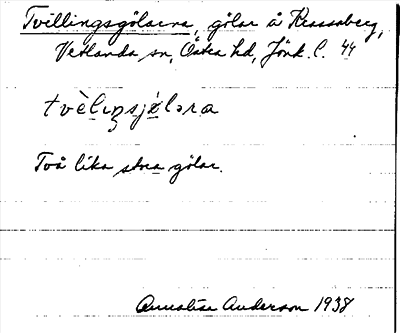 Tvillingsgölarna, gölar å Krassaberg,
Vetlanda sn, Östra hd, Jönk. l. 44
tvèlıŋsjø̀ləra
Två lika stora gölar.
Annalisa Anderson 1938